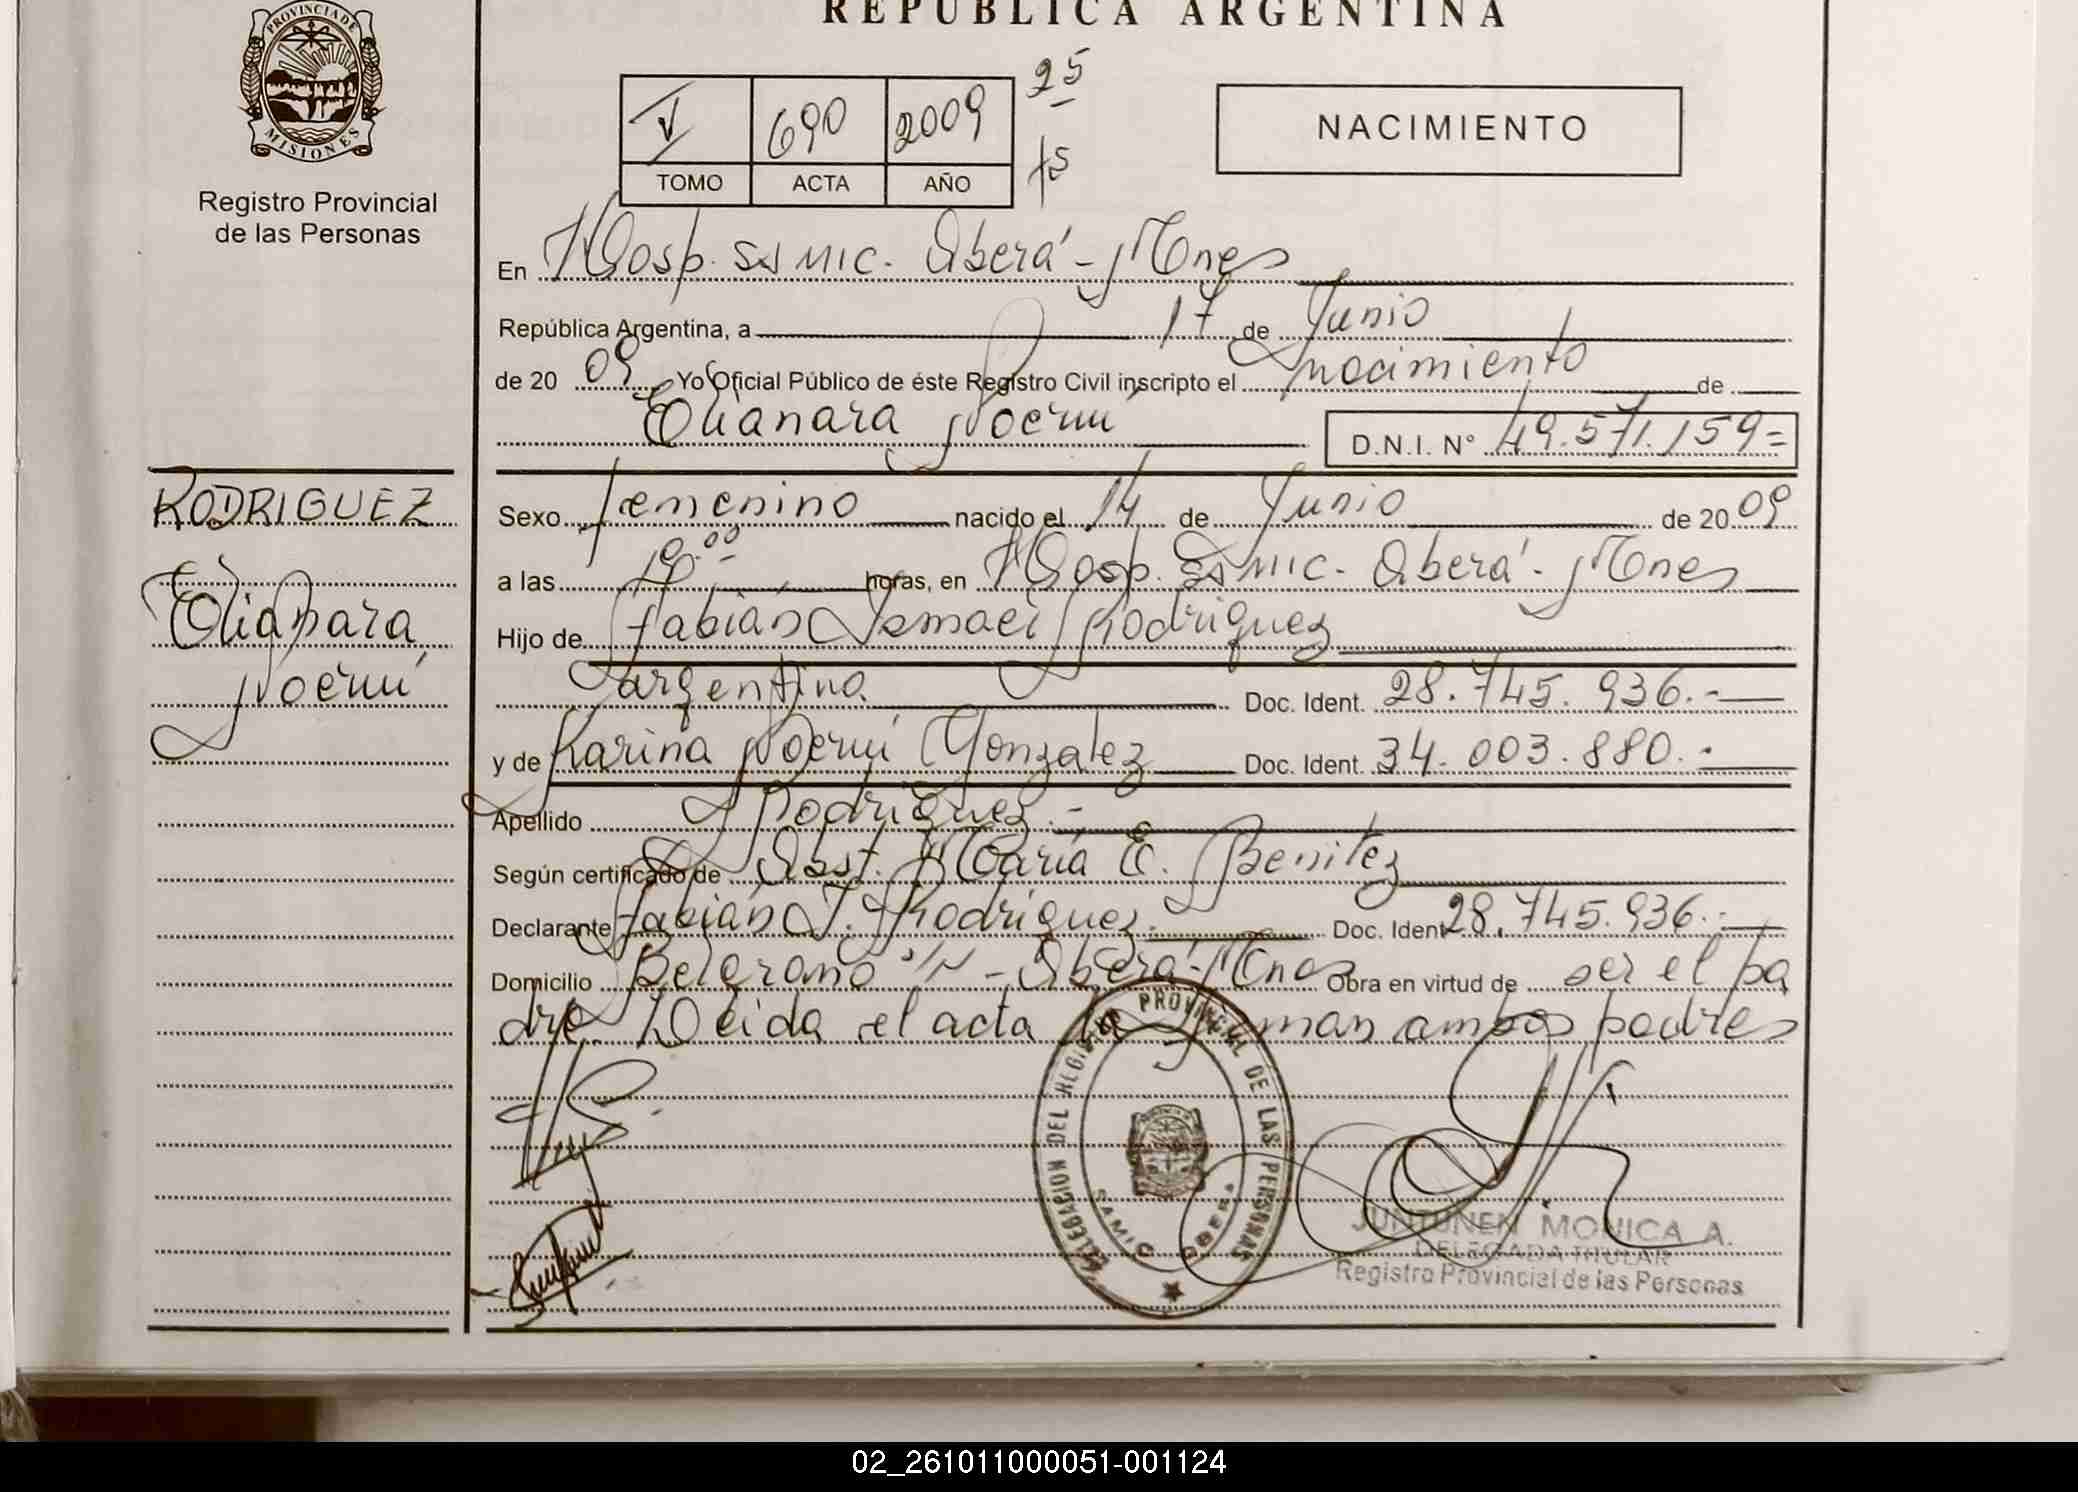 REPUBLICA ARGENTINA
PROVINCIA DE
MISIONES
Registro Provincial
de las Personas
V 690 2009
TOMO ACTA AÑO
25
75
NACIMIENTO
En Hosp. SAMIC. Oberá - Mnes
República Argentina, a 17 de Junio
de 20 09 Yo Oficial Público de éste Registro Civil inscripto el nacimiento de
Elianara Noemí D.N.I. N° 49.571.159=
RODRIGUEZ
Elianara
Noemí
Sexo femenino nacido el 14 de Junio de 20 09
a las horas, en Hosp. SAMIC. Oberá - Mnes
Hijo de Fabián Ismael Rodriguez
argentina Doc. Ident. 28.745.936.-
y de Karina Noemí Gonzalez Doc. Ident. 34.003.880.-
Apellido Rodriguez.-
Según certificado de Obst. María E. Benitez
Declarante Fabián I. Rodriguez. Doc. Ident 28.745.936.-
Domicilio Belgrano S/N - Oberá - Mnes Obra en virtud de ser el pa
dre. Leida el acta la firman ambos padres
DELEGACION DEL REGISTRO PROVINCIAL DE LAS PERSONAS
SAMIC OBERA
JUNTUNEN MONICA A.
DELEGADA TITULAR
Registro Provincial de las Personas
02_261011000051-001124